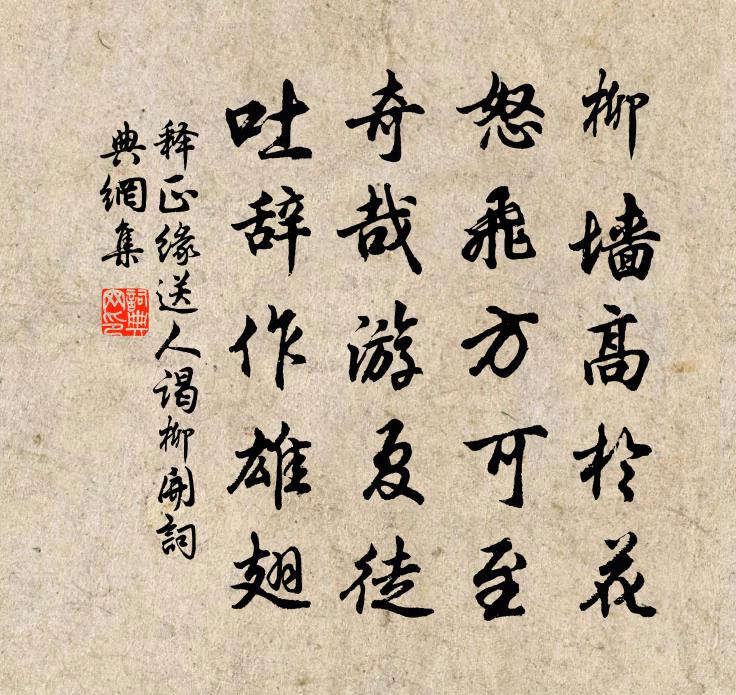 柳墙高於花
怒飛方可至
奇哉游夏徒
吐辞作雄翅
释正缘送人谒柳開詞
典網集
詞典网印